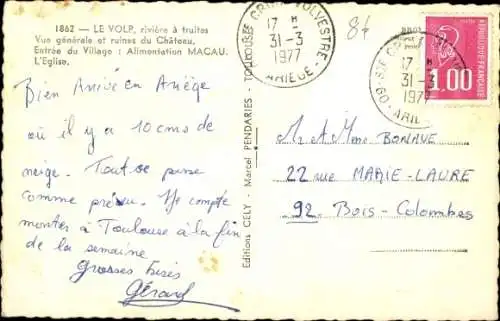 1862 — LE VOLP, rivière à truites
Vue générale et ruines du Château.
Entrée du Village : Alimentation MACAU.
L'Eglise.
Bien Arrivé en Ariège
où il y a 10 cms de
neige. Tout se passe
comme prévu. Je compte
monter à Toulouse à la fin
de la semaine
Grosses bises
Gérard
Editions CELY - Marcel PENDARIES - TOULOUSE
17 H
31-3
1977
ARIEGE
84
17 H
31-3
1977
09
REPUBLIQUE FRANÇAISE
1,00
M et Mme BONAVE
22 rue MARIE-LAURE
92 Bois-Colombes